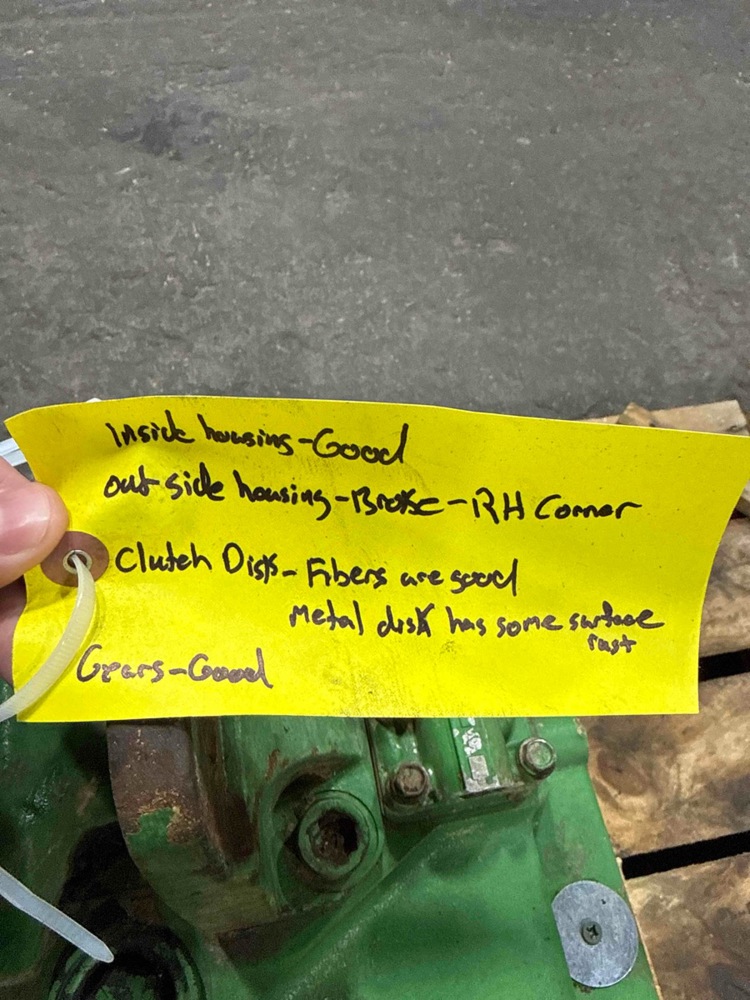 Inside housing-Good
out side housing-Broke-RH Corner
Clutch Disk-Fibers are good
Metal disk has some surface
rust
Gears-Good